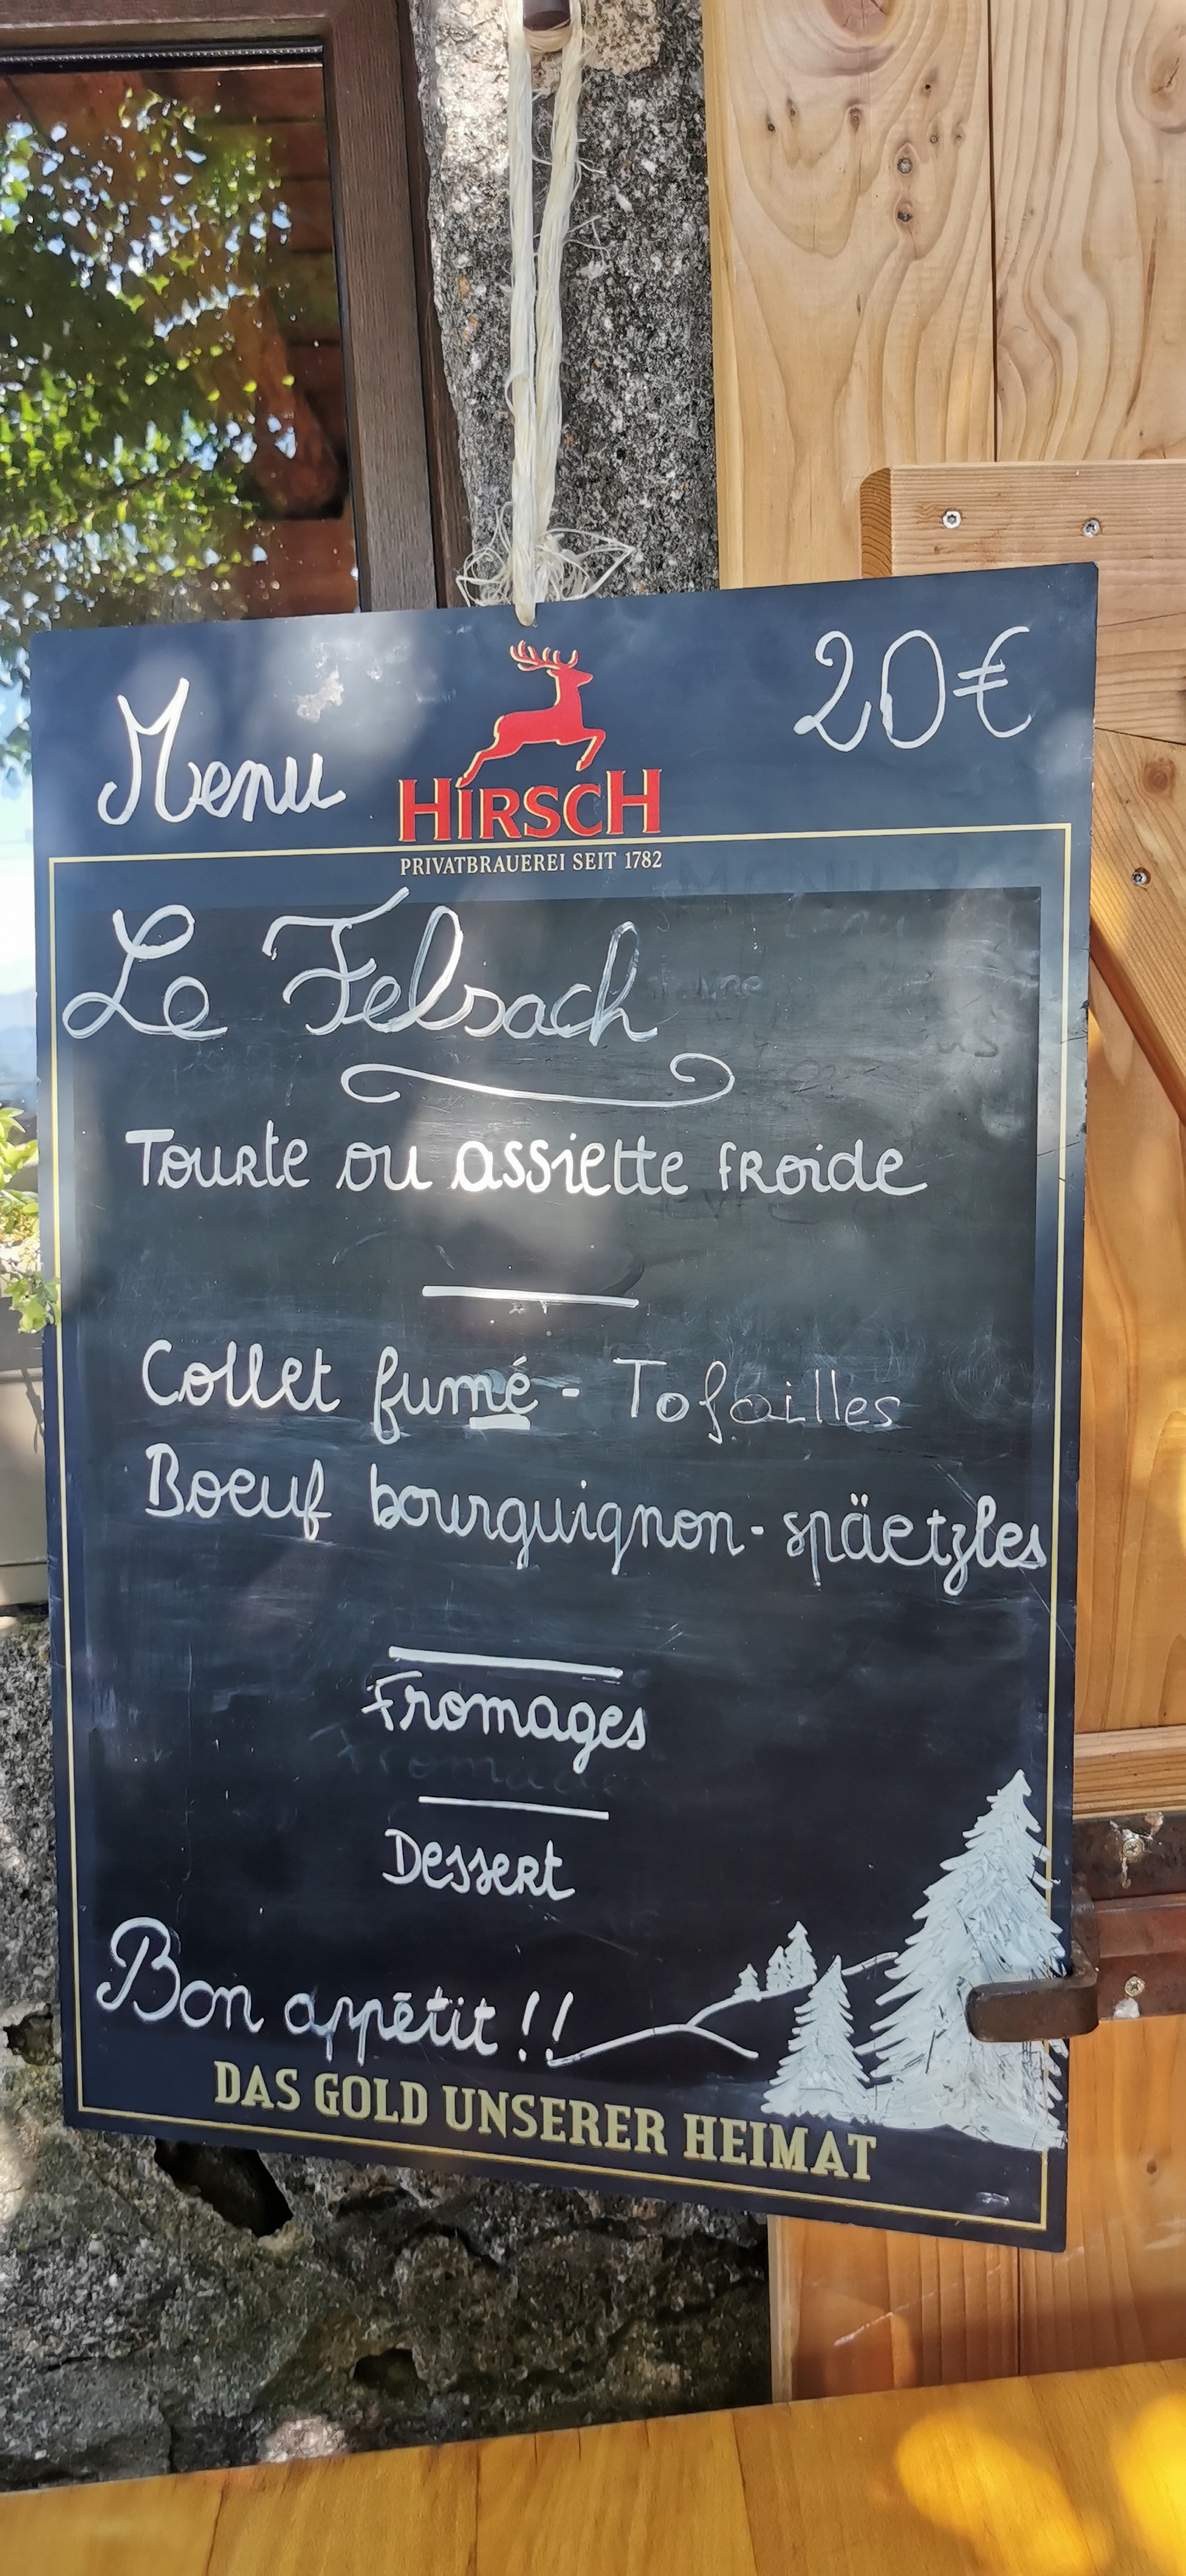 Menu
20€
HIRSCH
PRIVATBRAUEREI SEIT 1782
Le Felsach
Tourte ou assiette froide
Collet fumé - Tofailles
Boeuf bourguignon - späetzles
Fromages
Dessert
Bon appétit !!
DAS GOLD UNSERER HEIMAT